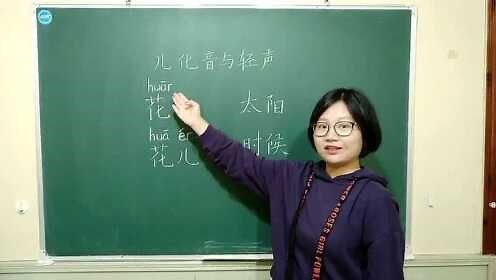 儿化音与轻声
huār
花 太阳
huā ér
花儿 时候
GIRL POWER